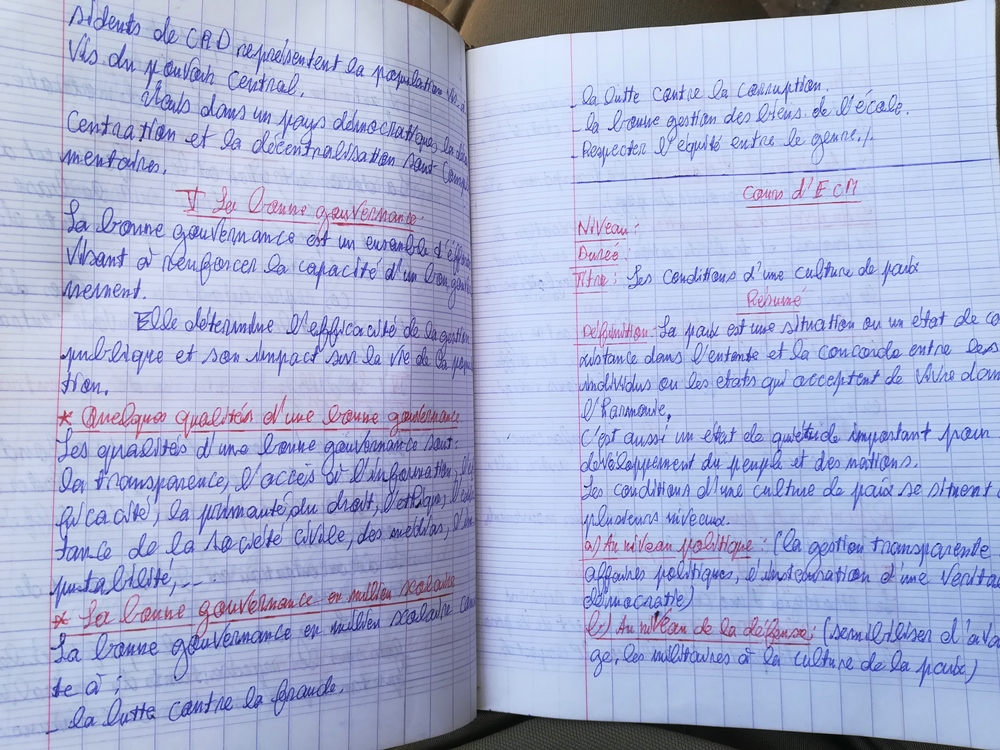 sidents de CRD représentent la population vis à
vis du pouvoir central.
Mais dans un pays démocratique, la décon
centration et la décentralisation sont complé
mentaires.
V La bonne gouvernance
La bonne gouvernance est un ensemble d'efforts
visant à renforcer la capacité d'un bon gouver
nement.
Elle détermine l'efficacité de la gestion
publique et son impact sur la vie de la popu
tion.
* Quelques qualités d'une bonne gouvernance
Les qualités d'une bonne gouvernance sont :
la transparence, l'accès à l'information, l'ef
ficacité, la primauté du droit, l'éthique,
tance de la société civile, des médias, l'im
putabilité,...
* La bonne gouvernance en milieu scolaire
La bonne gouvernance en milieu scolaire consis
te à :
- la lutte contre la fraude.
- la lutte contre la corruption.
- la bonne gestion des biens de l'école.
- Respecter l'équité entre le genre./.
Cours d'ECM
Niveau :
Durée
Titre : Les conditions d'une culture de paix
Résumé
Définition : La paix est une situation ou un état de co
existance dans l'entente et la concorde entre les
individus ou les etats qui acceptent de vivre dans
l'harmonie.
C'est aussi un etat de quiétude important pour
développement du peuple et des nations.
Les conditions d'une culture de paix se situent à
plusieurs niveaux.
a) Au niveau politique : (la gestion transparente
affaires politiques, l'instauration d'une verita
démocratie)
b) Au niveau de la défense : (sensibiliser d'avanta
ge, les militaires à la culture de la paix)